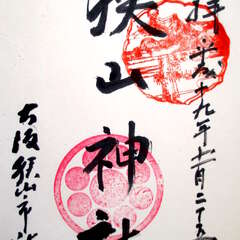 拝 平成十九年十二月二十
狭山神社
大阪狭山市